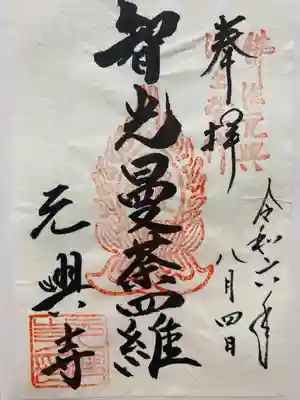 奉拝
令和六年
八月四日
智光曼荼羅
元興寺